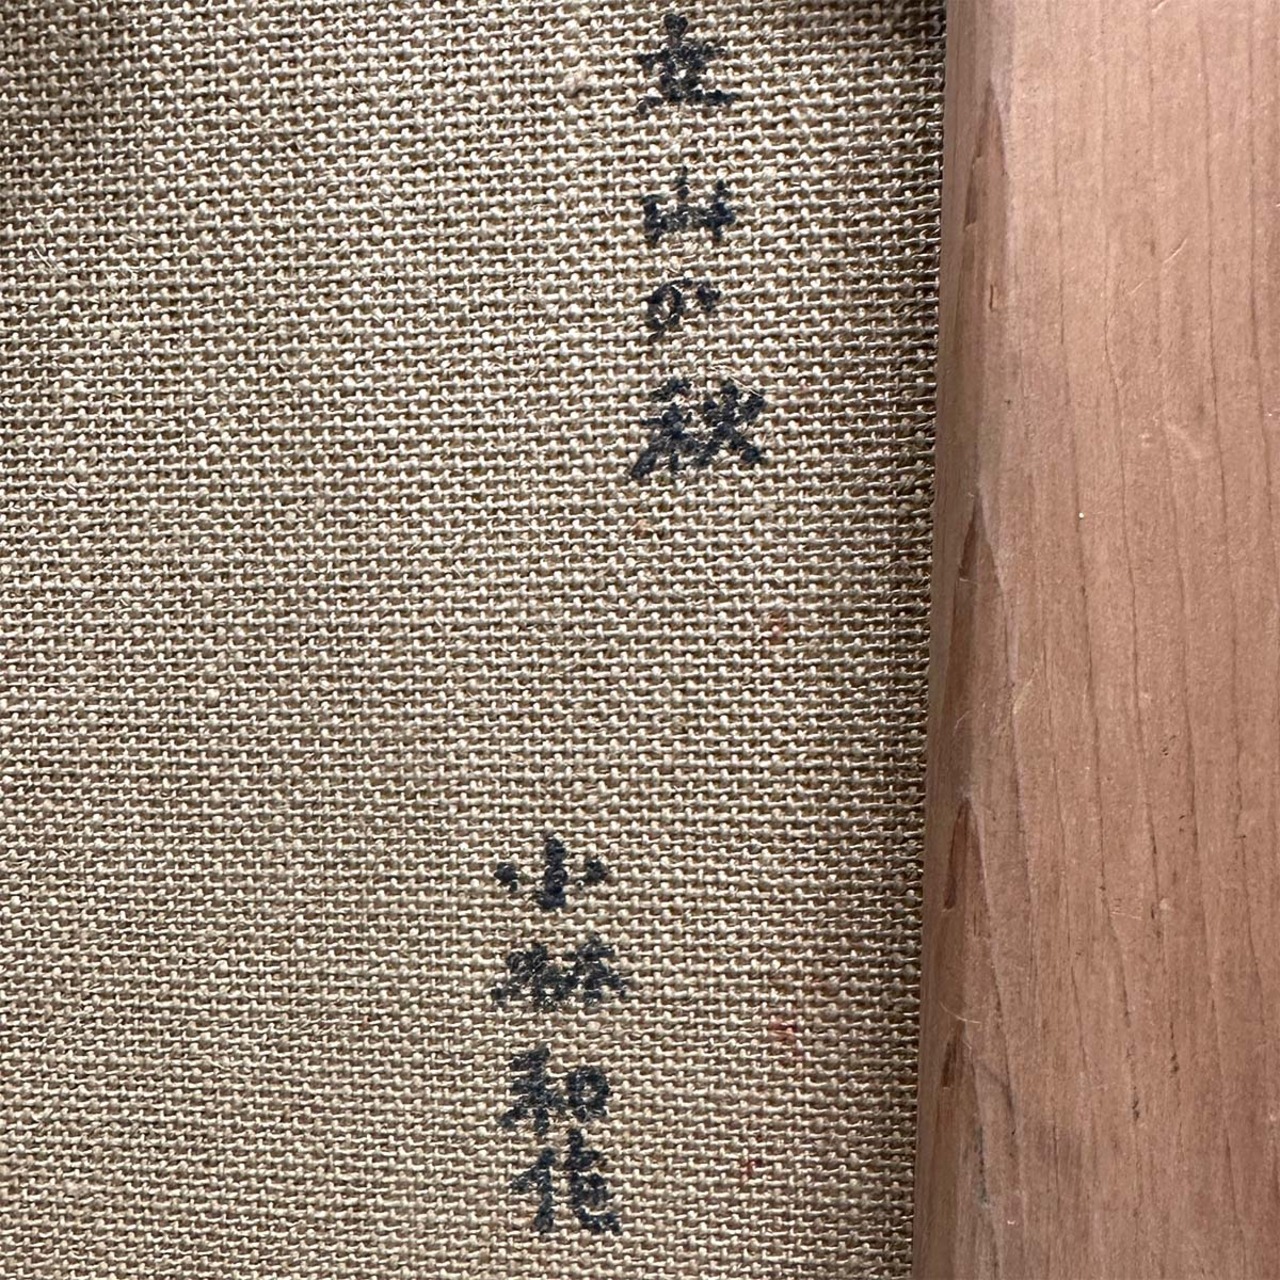 立山の秋
小林和作